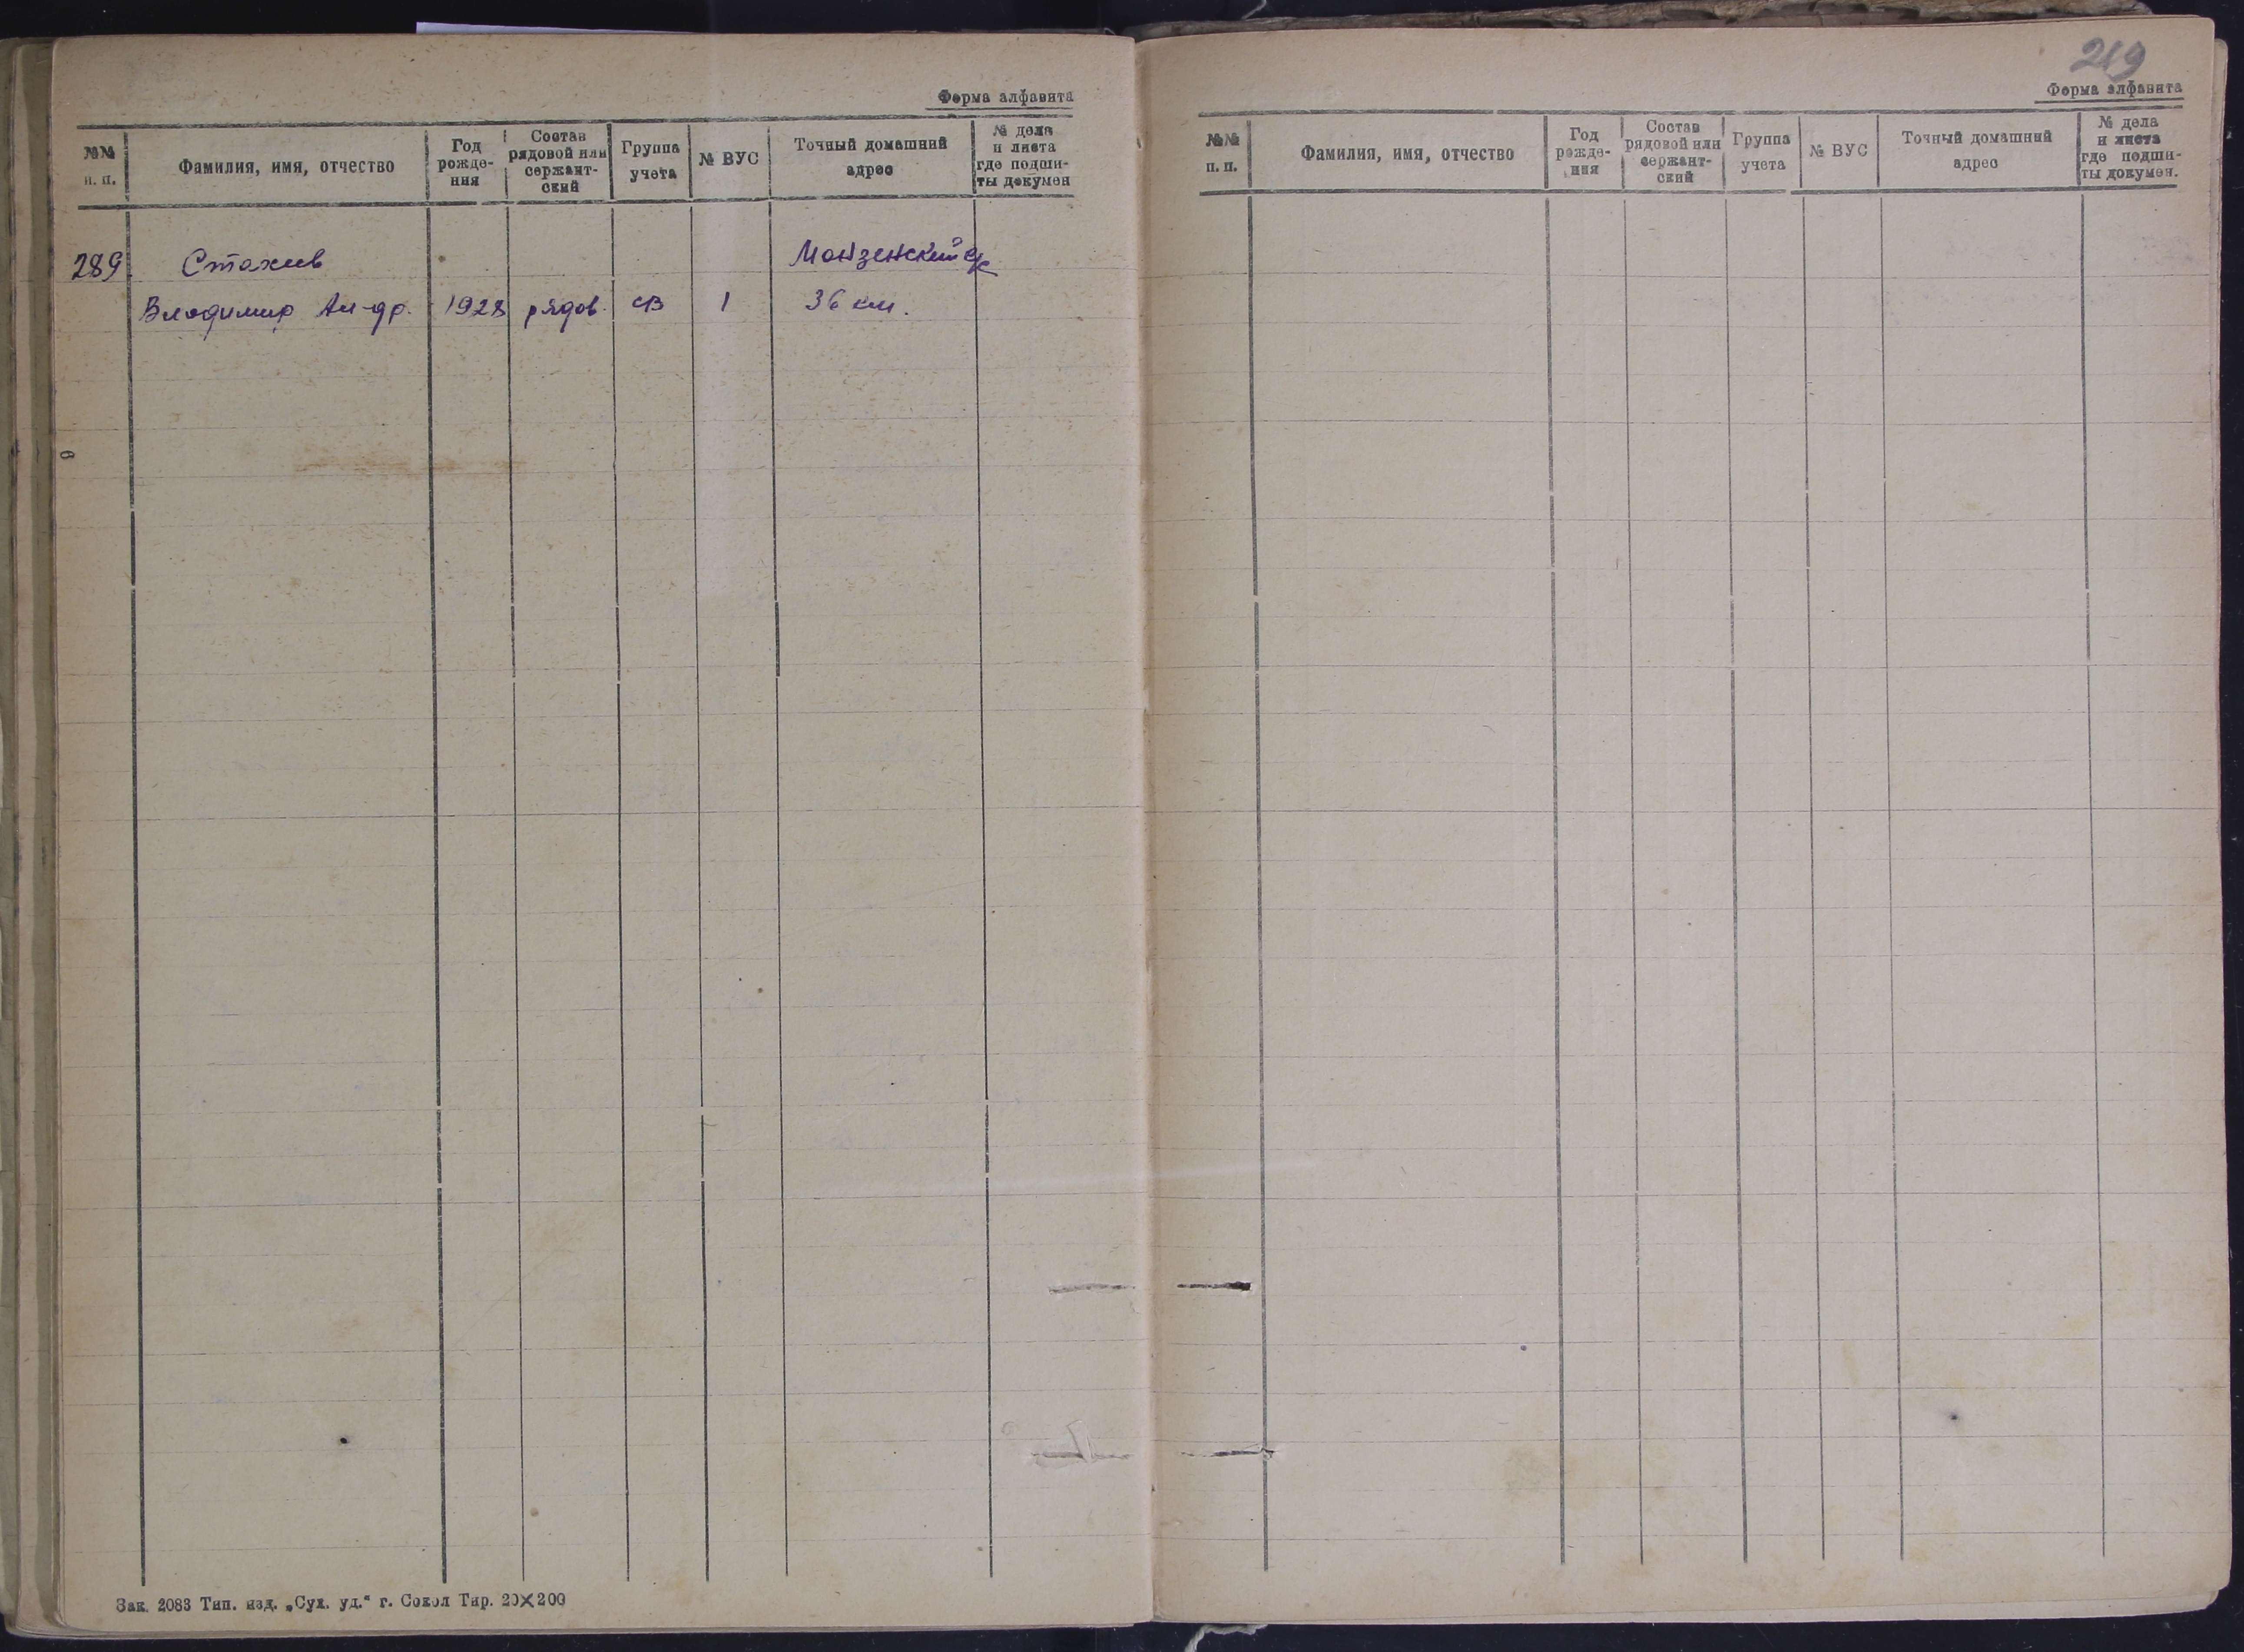 Форма алфавита
№№ п. п.
Фамилия, имя, отчество
Год рожде-ния
Состав рядовой или сержант-ский
Группа учета
№ ВУС
Точный домашний адрес
№ дела и листа где подши-ты докумен
289 Стахив Монзенский
Владимир Ал-др. 1928 рядов. СВ 1 36 км.
Зак. 2083 Тип. изд. „Сух. уд.“ г. Сокол Тир. 20×200
219
Форма алфавита
№№ п. п.
Фамилия, имя, отчество
Год рожде-ния
Состав рядовой или сержант-ский
Группа учета
№ ВУС
Точный домашний адрес
№ дела и листа где подши-ты докумен.